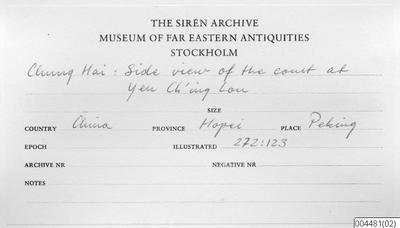 THE SIRÉN ARCHIVE
MUSEUM OF FAR EASTERN ANTIQUITIES
STOCKHOLM
Chung Hai: Side view of the court at
Yen Ch'ing Lou
SIZE
COUNTRY China PROVINCE Hopei PLACE Peking
EPOCH ILLUSTRATED 272:123
ARCHIVE NR NEGATIVE NR
NOTES
004481(02)